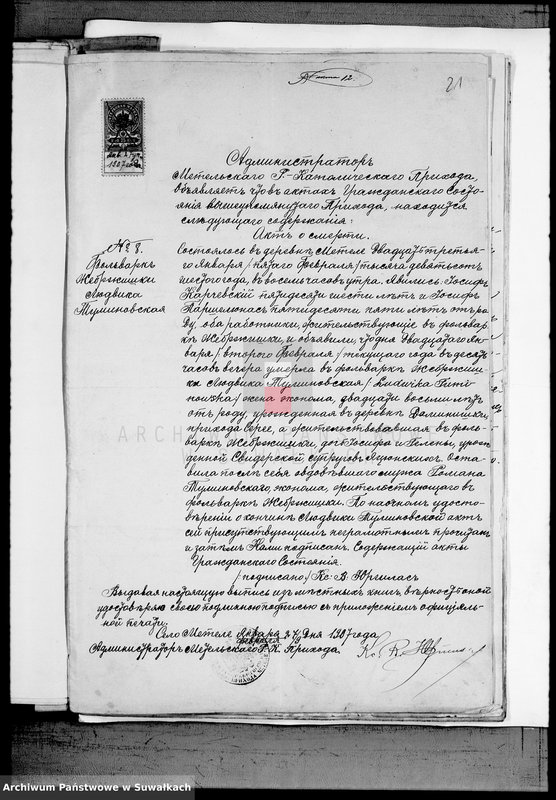 21
12.
1907 года
Администраторъ
Метельскаго Р.-Католическаго Прихода,
объявляетъ что въ актахъ Гражданскаго Состо-
янія вышеупомянутаго Прихода, находится
слѣдующаго содержанія:
Актъ о смерти.
№ 8.
Фольваркъ
Жебржишки
Людвика
Тулиновская
Состоялось въ деревнѣ Метеле Двадцать третья-
го Января /пятаго Февраля/ тысяча девятьсотъ
шестого года, въ восемь часовъ утра. Явились: Іосифъ
Карчевскій пятидесяти шести лѣтъ и Іосифъ
пятидесяти пяти лѣтъ отъ ро-
ду, оба работники, жительствующіе въ фольвар-
кѣ Жебржишки, и объявили, что дня Двадцатаго Ян-
варя /второго Февраля/ текущаго года въ десять
часовъ вечера умерла въ фольваркѣ Жебржиш-
ки Людвика Тулиновская /Ludwika
/ жена эконома, двадцати восьми лѣтъ
отъ роду, урожденная въ деревнѣ
прихода Сереe, а жительствовавшая въ фоль-
варкѣ Жебржишки, дочь Іосифа и Елены, урож-
денной Свидерской, супруговъ Яцонскихъ. Оста-
вила послѣ себя овдовѣвшаго мужа Романа
Тулиновскаго, эконома, жительствующаго въ
фольваркѣ Жебржишки. По наочномъ удосто-
вѣреніи о кончинѣ Людвики Тулиновской актъ
сей присутствующимъ неграмотнымъ прочитанъ
и затѣмъ Нами подписанъ. Содержащій акты
Гражданскаго Состоянія.
/подписано/ Кс: В. Юргиласъ
Выдавая настоящую выпись изъ мѣстныхъ книгъ, вѣрность оной
удостовѣряю своею подписью съ приложеніемъ офиціаль-
ной печати.
Село Метеле Января 27 Дня 1907 года
Администраторъ Метельскаго Р. К. Прихода.
Archiwum Państwowe w Suwałkach